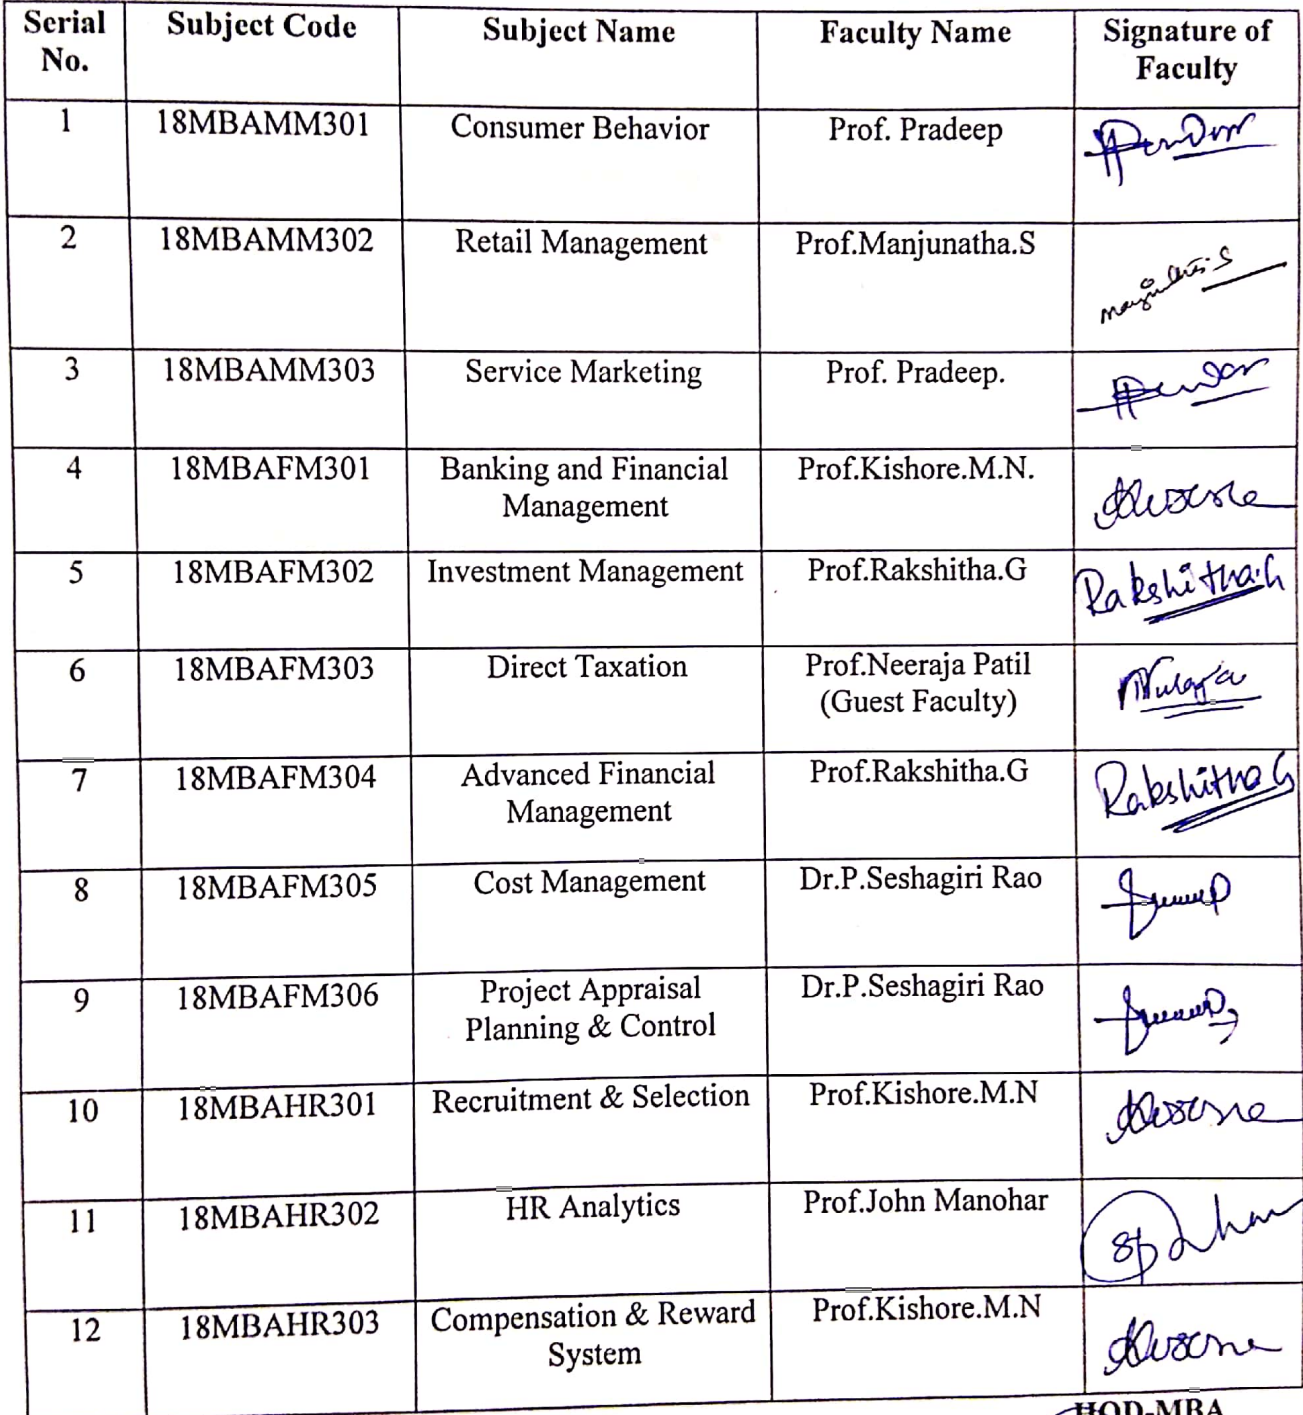 Serial No. Subject Code Subject Name Faculty Name Signature of Faculty
1 18MBAMM301 Consumer Behavior Prof. Pradeep
2 18MBAMM302 Retail Management Prof.Manjunatha.S
3 18MBAMM303 Service Marketing Prof. Pradeep.
4 18MBAFM301 Banking and Financial Management Prof.Kishore.M.N.
5 18MBAFM302 Investment Management Prof.Rakshitha.G Rakshitha.G
6 18MBAFM303 Direct Taxation Prof.Neeraja Patil (Guest Faculty)
7 18MBAFM304 Advanced Financial Management Prof.Rakshitha.G Rakshitha G
8 18MBAFM305 Cost Management Dr.P.Seshagiri Rao
9 18MBAFM306 Project Appraisal Planning & Control Dr.P.Seshagiri Rao
10 18MBAHR301 Recruitment & Selection Prof.Kishore.M.N
11 18MBAHR302 HR Analytics Prof.John Manohar
12 18MBAHR303 Compensation & Reward System Prof.Kishore.M.N
HOD-MBA